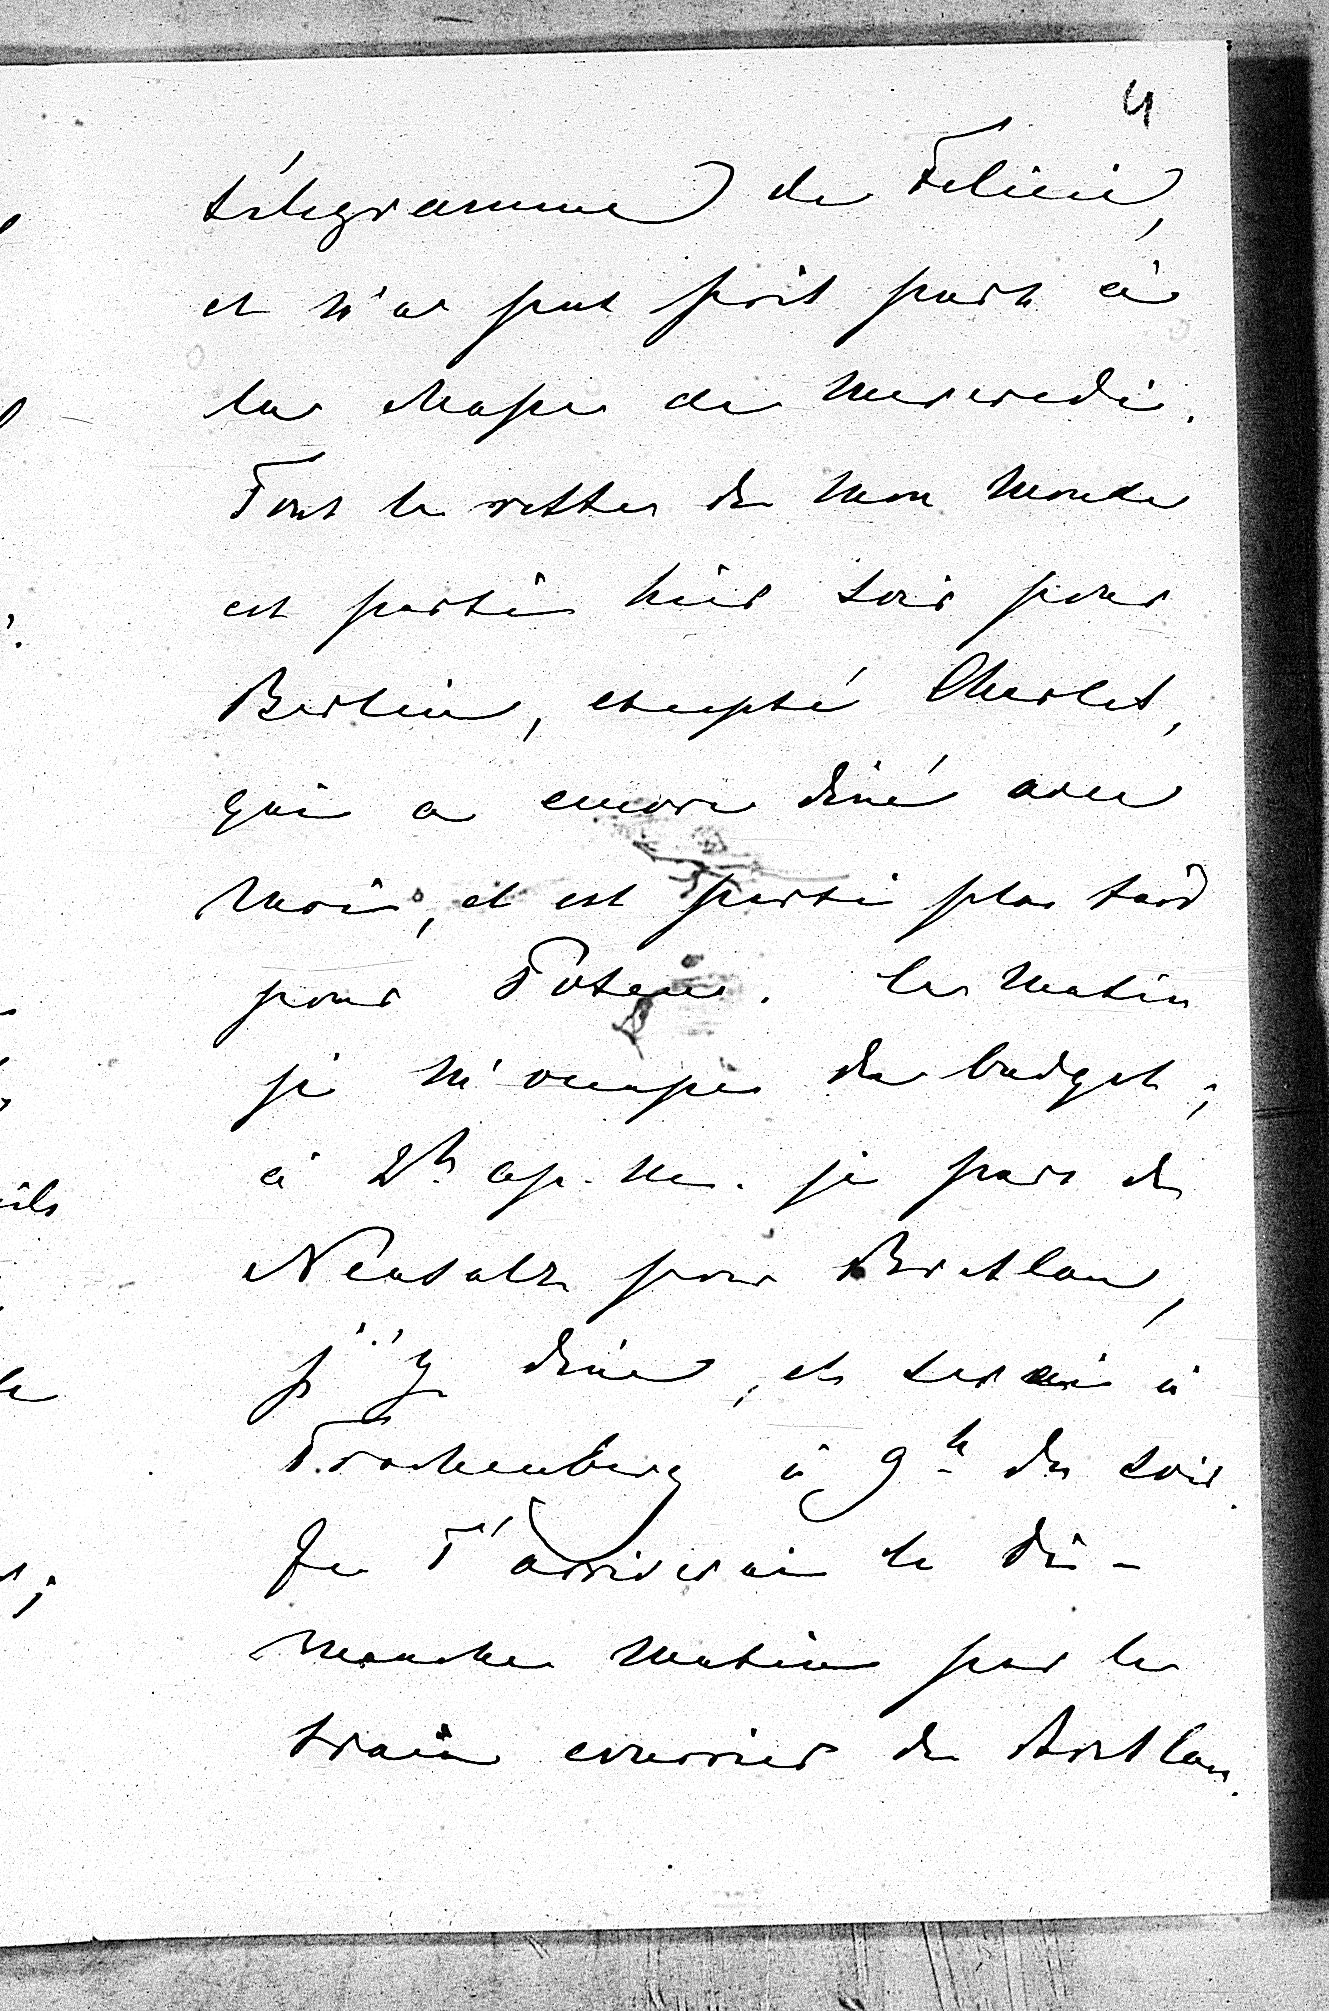 4
télegramme de Felicie,
et n'a pas prit part à
la chasse de Mercredi.
Tout le reste de mon monde
est parti hier soir pour
Berlin, excepté Charles,
qui a encore dîné avec
moi, et est parti plus tard
pour Posen. Le matin
je m'occupe du budget;
à 2h ap. m. je pars de
Neusalz pour Breslau,
j'y dine, et serai à
Trachenberg à 9h du soir.
Je T'arriverai le di-
manche matin par le
train courrier de Breslau.